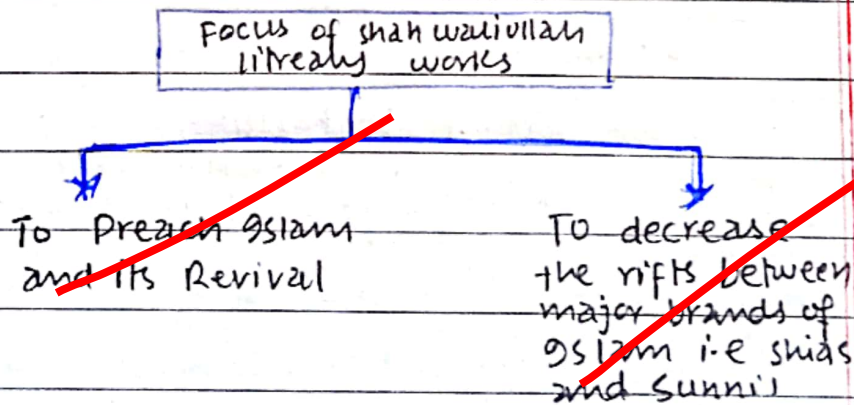 Focus of shah waliullah
litrealy works
To Preach Islam
and its Revival
To decrease
the rifts between
major brands of
Islam i.e shias
and Sunnis